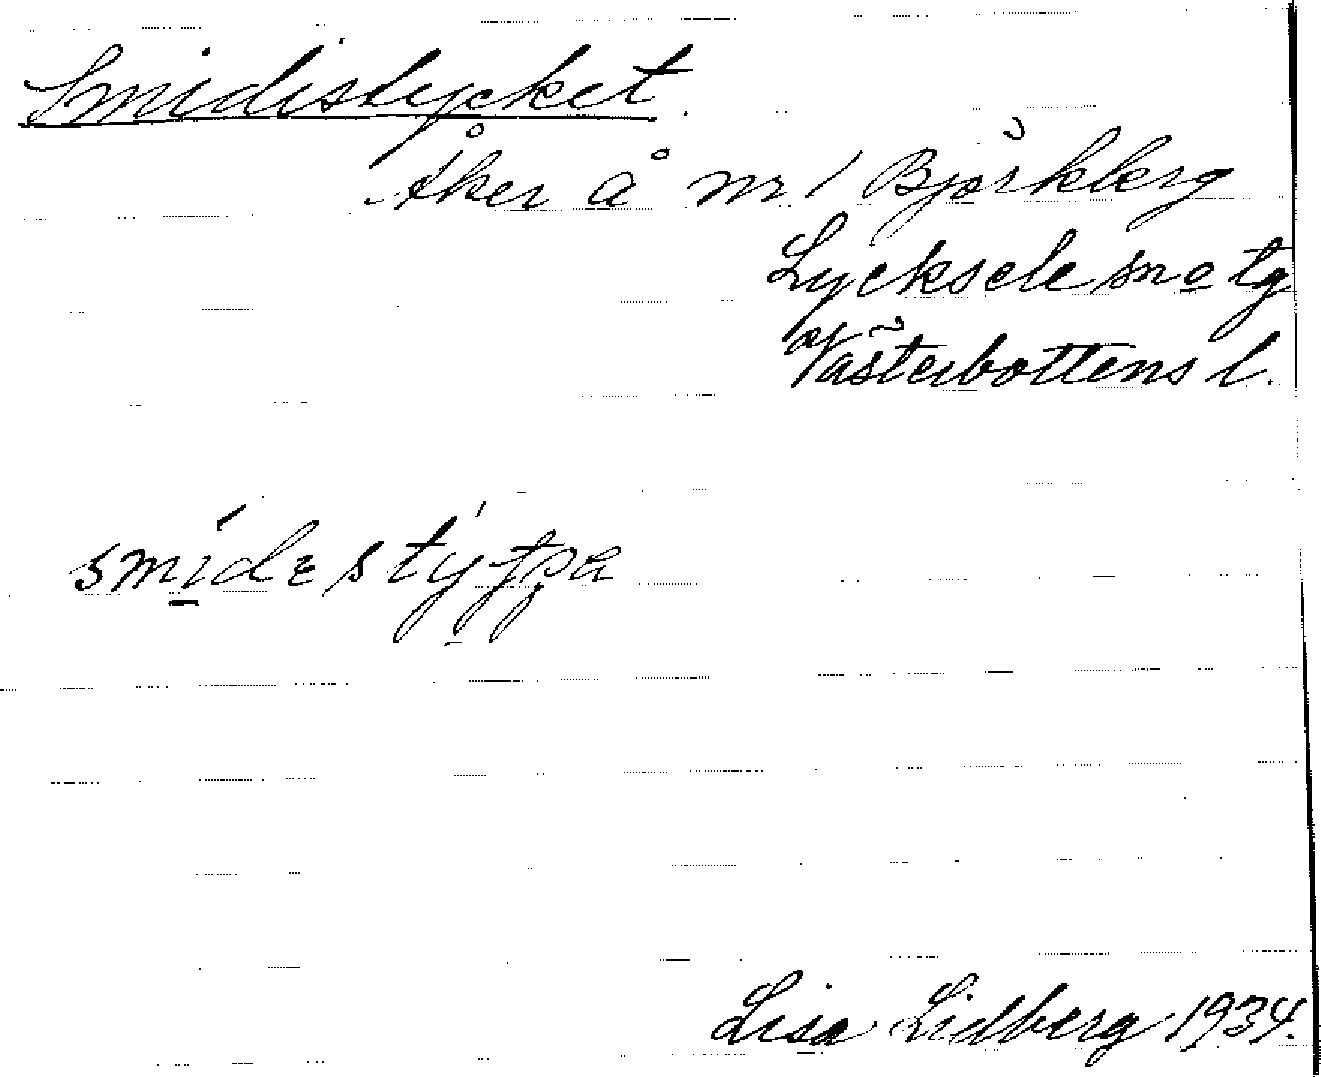 Smidistycket.
Åker å nr 1 Björkberg
Lycksele sn o tg
Västerbottens l.
Lisa Lidberg 1934.